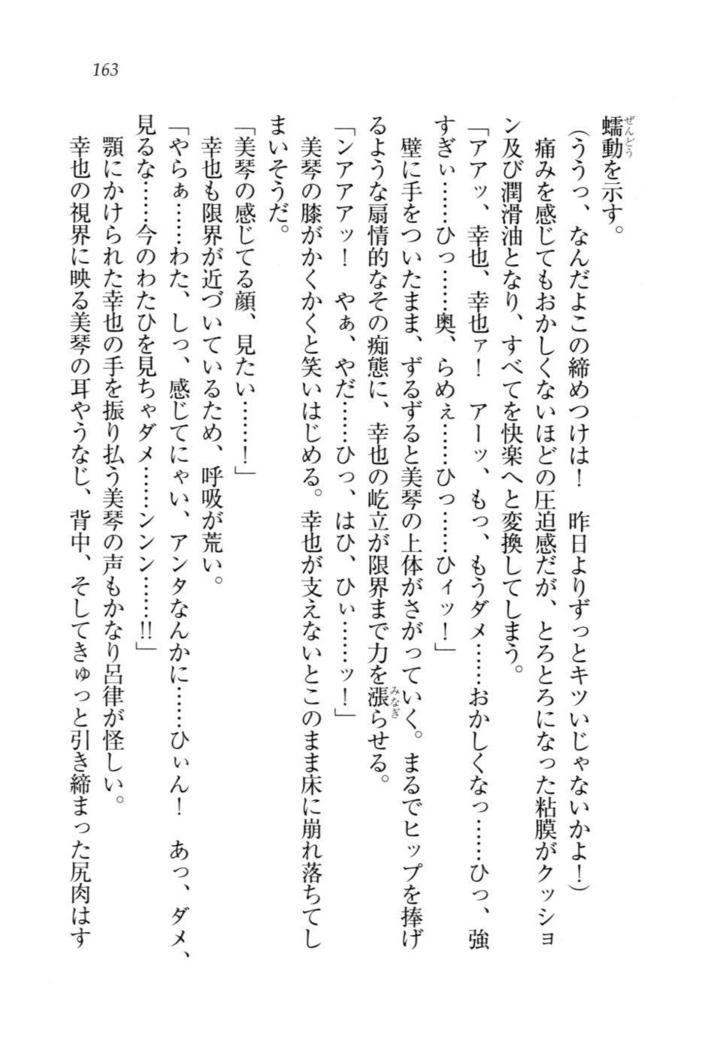 163
蠕動を示す。
ぜんどう
（ううっ、なんだよこの締めつけは！　昨日よりずっとキツいじゃないかよ！）
痛みを感じてもおかしくないほどの圧迫感だが、とろとろになった粘膜がクッショ
ン及び潤滑油となり、すべてを快楽へと変換してしまう。
「アアッ、幸也、幸也ァ！　アーッ、もっ、もうダメ……おかしくなっ……ひっ、強
すぎぃ……ひっ……奥、らめぇ……ひっ……ひィッ！」
壁に手をついたまま、ずるずると美琴の上体がさがっていく。まるでヒップを捧げ
るような扇情的なその痴態に、幸也の屹立が限界まで力を漲らせる。
みなぎ
「ンアアアッ！　やぁ、やだ……ひっ、はひ、ひぃ……ッ！」
美琴の膝がかくかくと笑いはじめる。幸也が支えないとこのまま床に崩れ落ちてし
まいそうだ。
「美琴の感じてる顔、見たい……！」
幸也も限界が近づいているため、呼吸が荒い。
「やらぁ……わた、しっ、感じてにゃい、アンタなんかに……ひぃん！　あっ、ダメ、
見るな……今のわたひを見ちゃダメ……ンンン……!!」
顎にかけられた幸也の手を振り払う美琴の声もかなり呂律が怪しい。
幸也の視界に映る美琴の耳やうなじ、背中、そしてきゅっと引き締まった尻肉はす